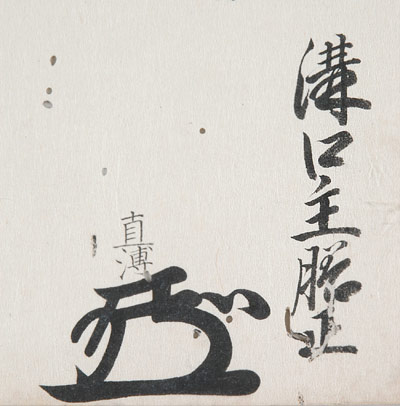 溝口主膳正
直溥